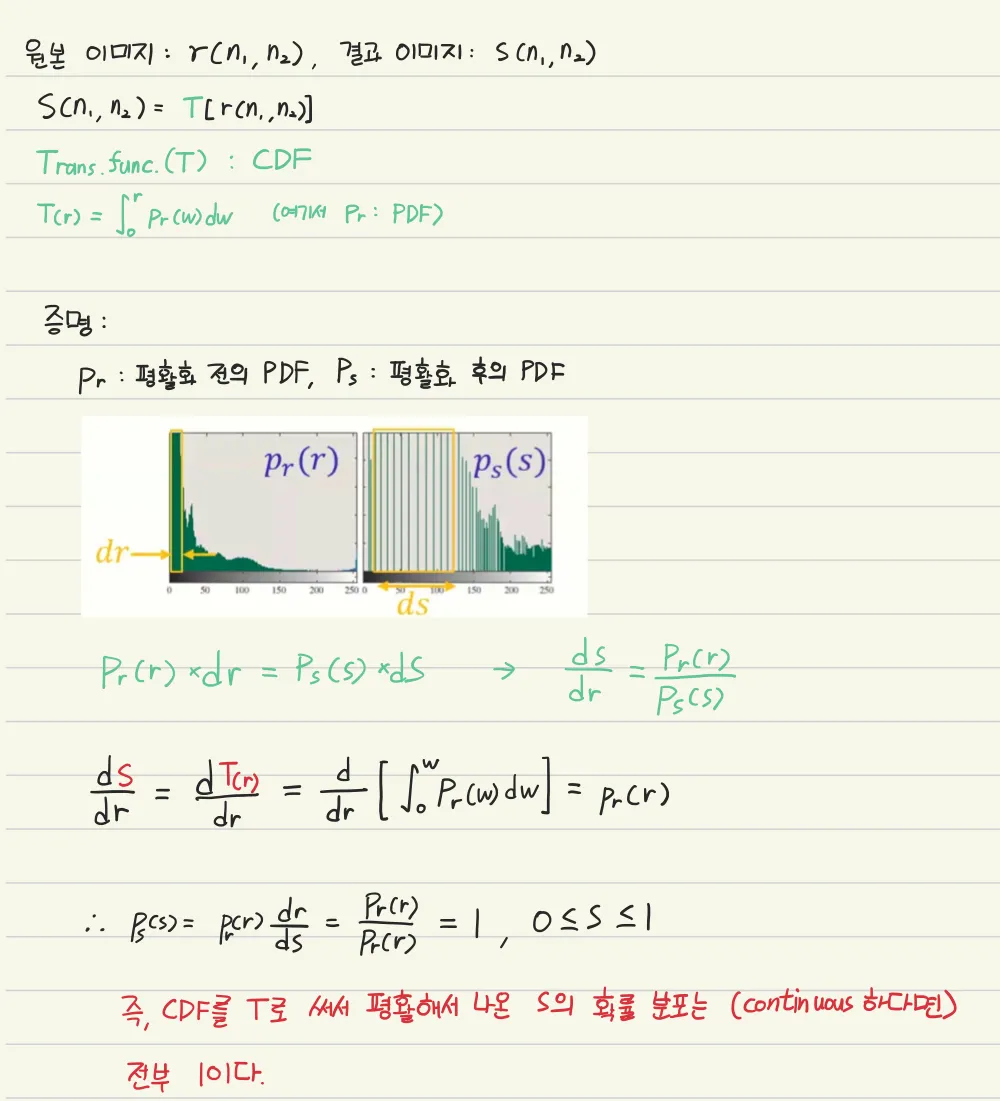 원본 이미지: r(n₁, n₂), 결과 이미지: S(n₁, n₂)
S(n₁, n₂) = T[r(n₁, n₂)]
Trans. func. (T) : CDF
T(r) = ∫₀ʳ Pr(w)dw (여기서 Pr : PDF)
증명 :
Pr : 평활화 전의 PDF, Ps : 평활화 후의 PDF
pᵣ(r) pₛ(s)
dr
0 50 100 150 200 250 0 50 100 150 200 250
ds
Pr(r) × dr = Ps(s) × dS → ds/dr = Pr(r)/Ps(s)
dS/dr = dT(r)/dr = d/dr [∫₀ʷ Pr(w)dw] = Pr(r)
∴ Ps(s) = Pr(r) dr/ds = Pr(r)/Pr(r) = 1, 0 ≤ S ≤ 1
즉, CDF를 T로 써서 평활해서 나온 S의 확률 분포는 (continuous 하다면)
전부 1이다.